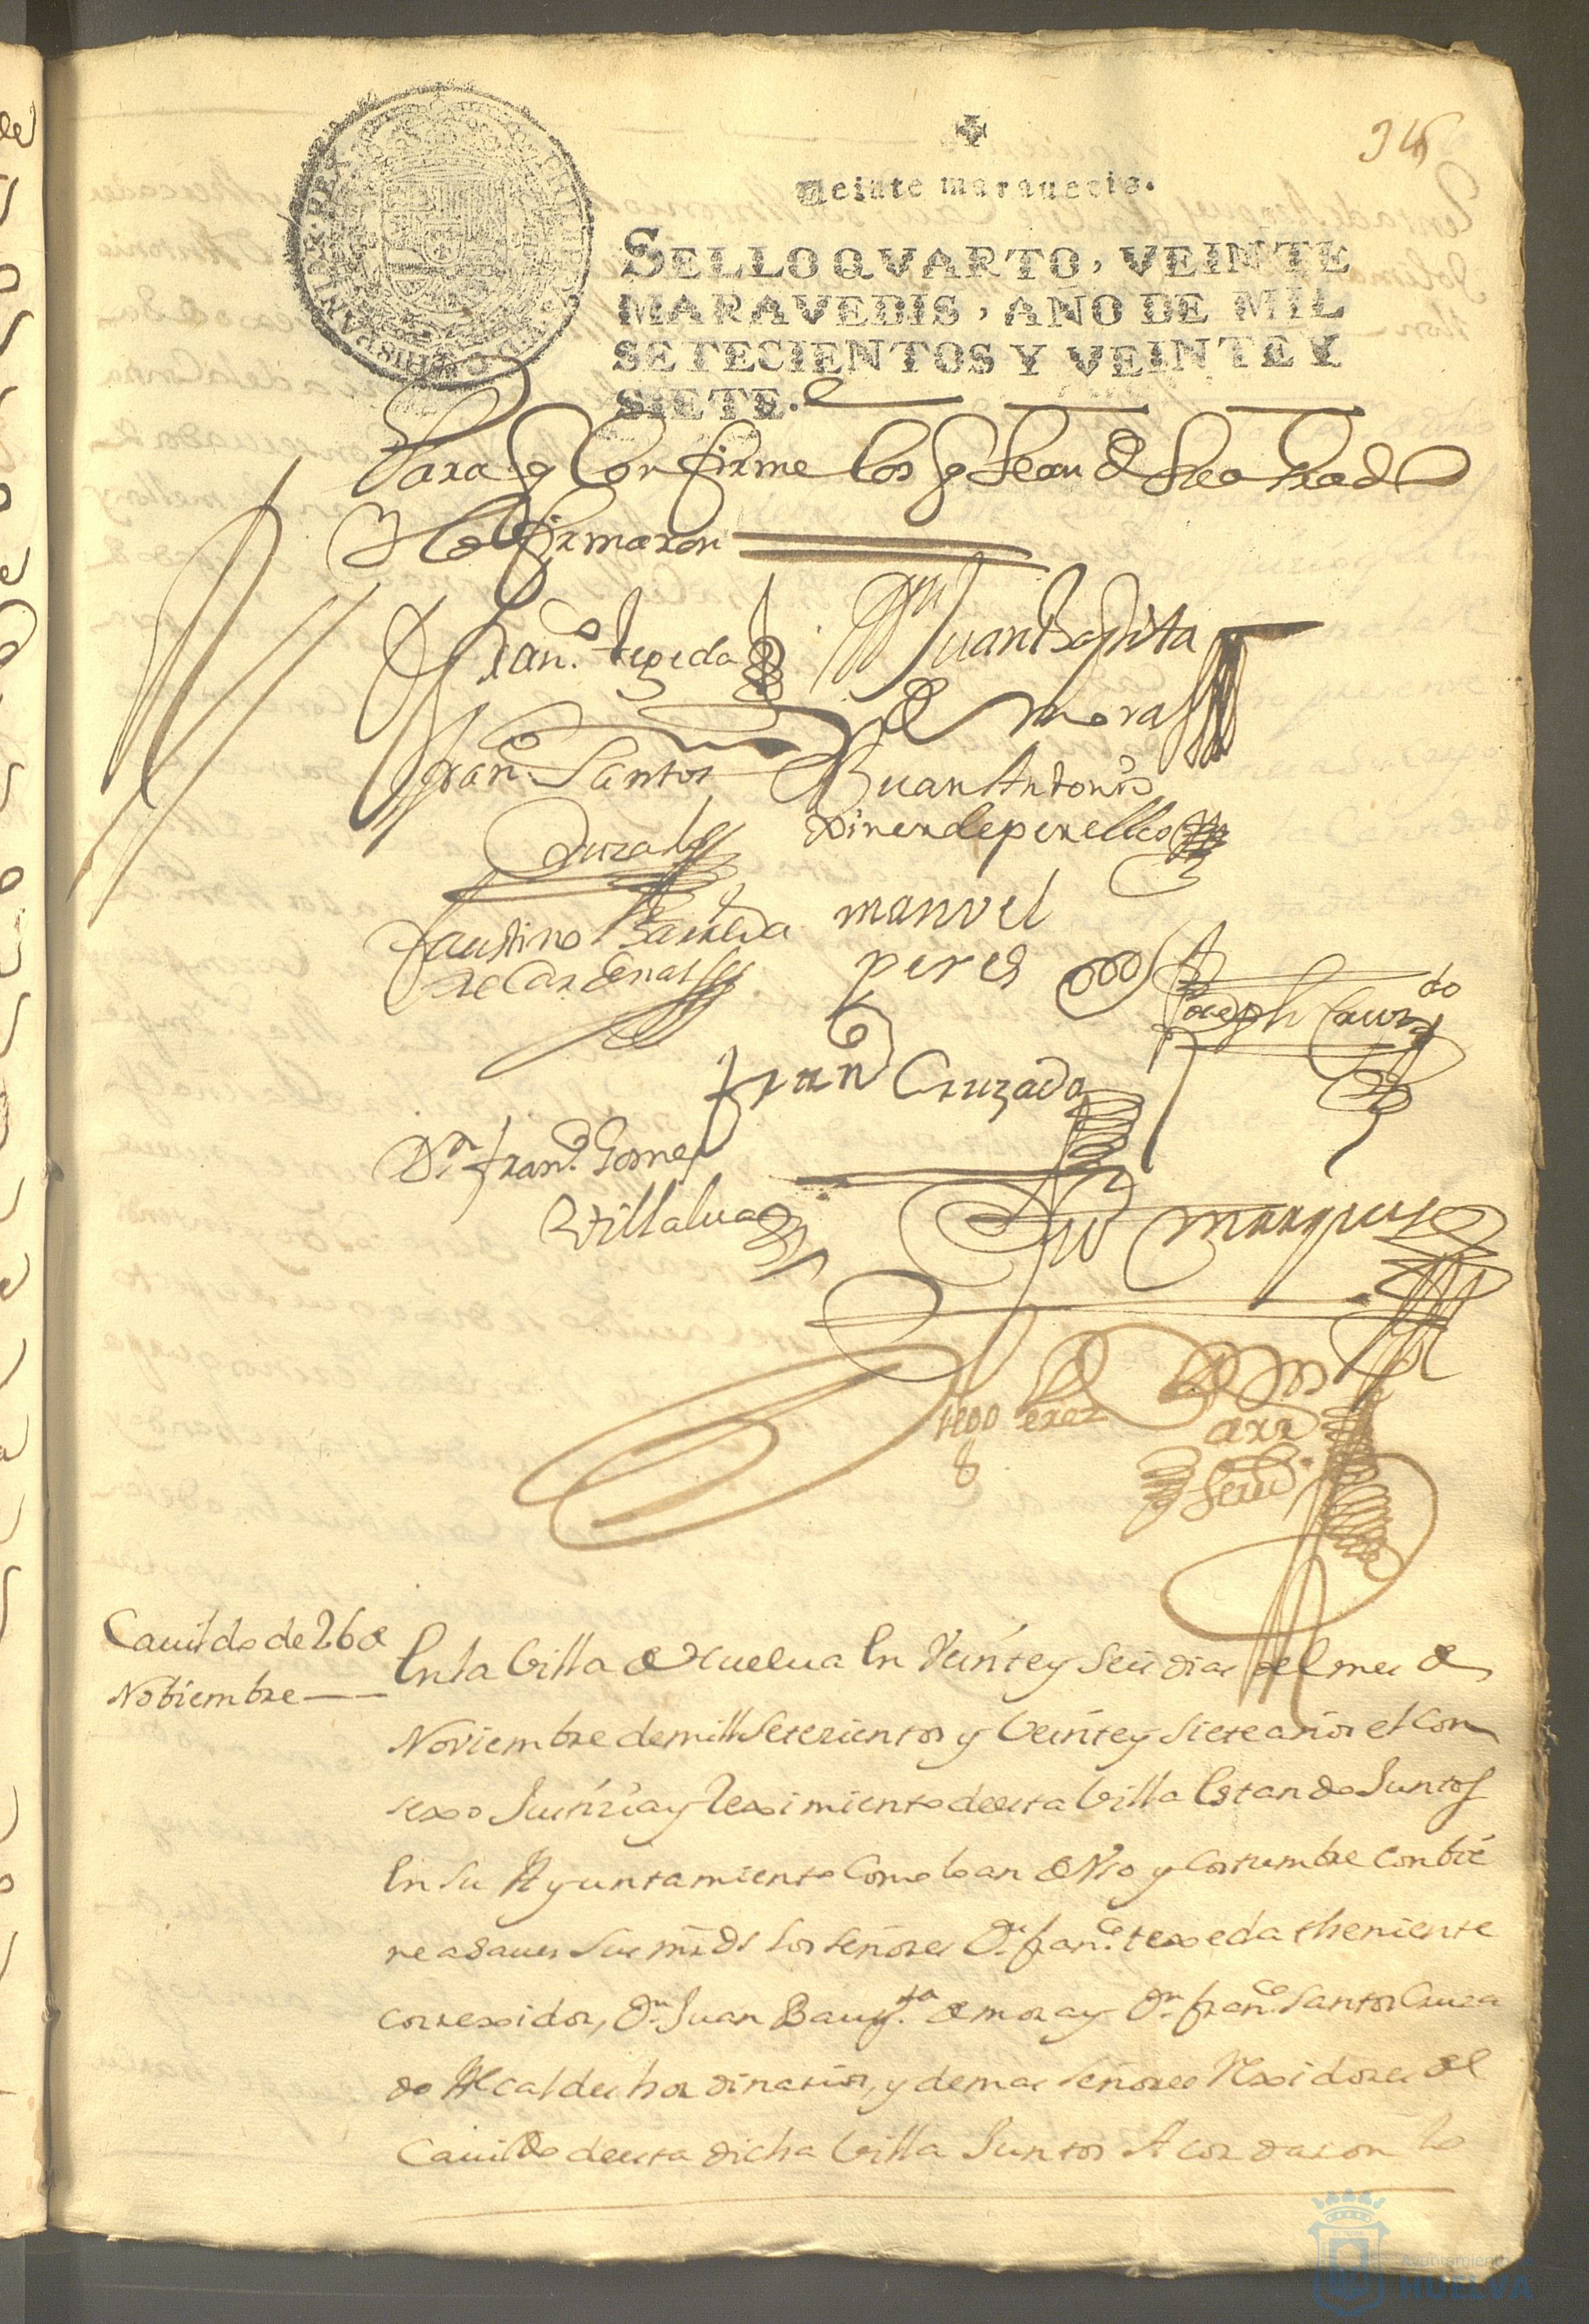 Veinte maravedis.
SELLO QVARTO, VEINTE
MARAVEDIS, AÑO DE MIL
SETECIENTOS Y VEINTE Y
SIETE.
Para q Confirme los q Sean de
lo firmaron
Fran.co tegeda Juan Baptista
de mora
Fran.co Santos Juan Antonio
Cruzado
Faustino Barreda manuel
de Cardenas peres Joseph
Fran.co Cruzado
Dn. fran.co Gomes
Villalua marques
Diego perez
Cauildo de 26 de
Nobiembre
En la Villa de Huelua En Veinte y Seis dias del mes de
Noviembre de mill Setezientos y Veinte y siete años el Con
sexo Justizia y Reximiento de esta Villa Estando Juntos
En Su Ayuntamiento Como lo an de Vso y Costumbre Conbie
ne a sauer Sus mrds los señores Dn. fran.co texeda theniente
correxidor, Dn. Juan Baup.ta de mora y Dn. fran.co Santos Cruza
do Alcaldes hordinarios, y demas señores Rexidores del
Cauildo de esta dicha Villa Juntos Acordaron lo
Ayuntamiento
HUELVA